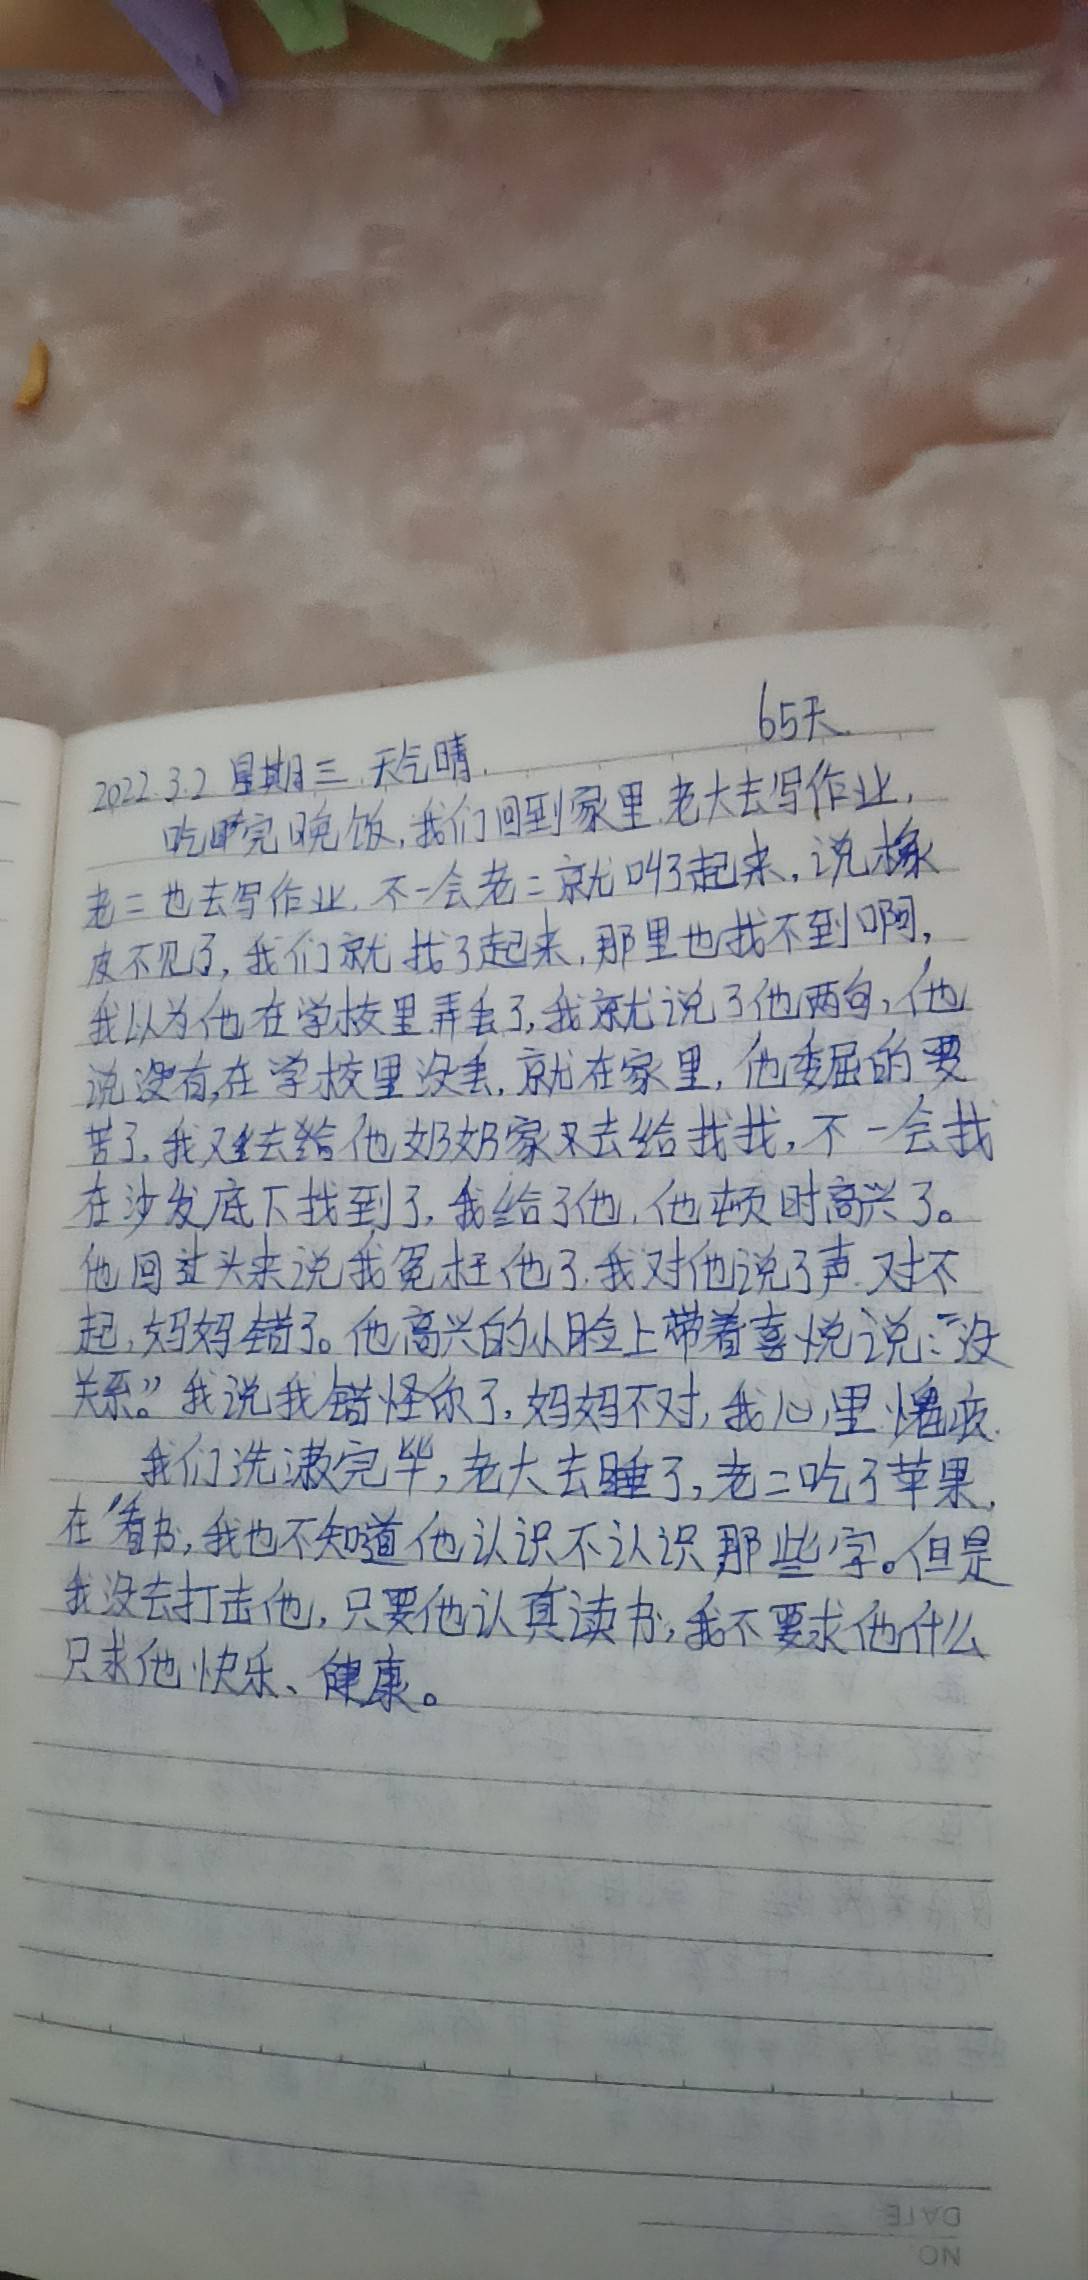 65天.
2022.3.2 星期三.天气晴.
吃完晚饭,我们回到家里.老大去写作业,
老二也去写作业.不一会老二就叫了起来,说橡
皮不见了,我们就找了起来,那里也找不到啊,
我以为他在学校里弄丢了,我就说了他两句,他
说没有,在学校里没丢.就在家里,他委屈的要
苦了,我又去给他奶奶家又去给找找,不一会找
在沙发底下找到了,我给了他,他顿时高兴了。
他回过头来说我冤枉他了.我对他说了声.对不
起,妈妈错了。他高兴的小脸上带着喜悦说:“没
关系。”我说我错怪你了,妈妈不对,我心里愧疚.
我们洗漱完毕,老大去睡了,老二吃了苹果,
在看书,我也不知道他认识不认识那些字。但是
我没去打击他,只要他认真读书,我不要求他什么
只求他快乐、健康。
DATE
NO